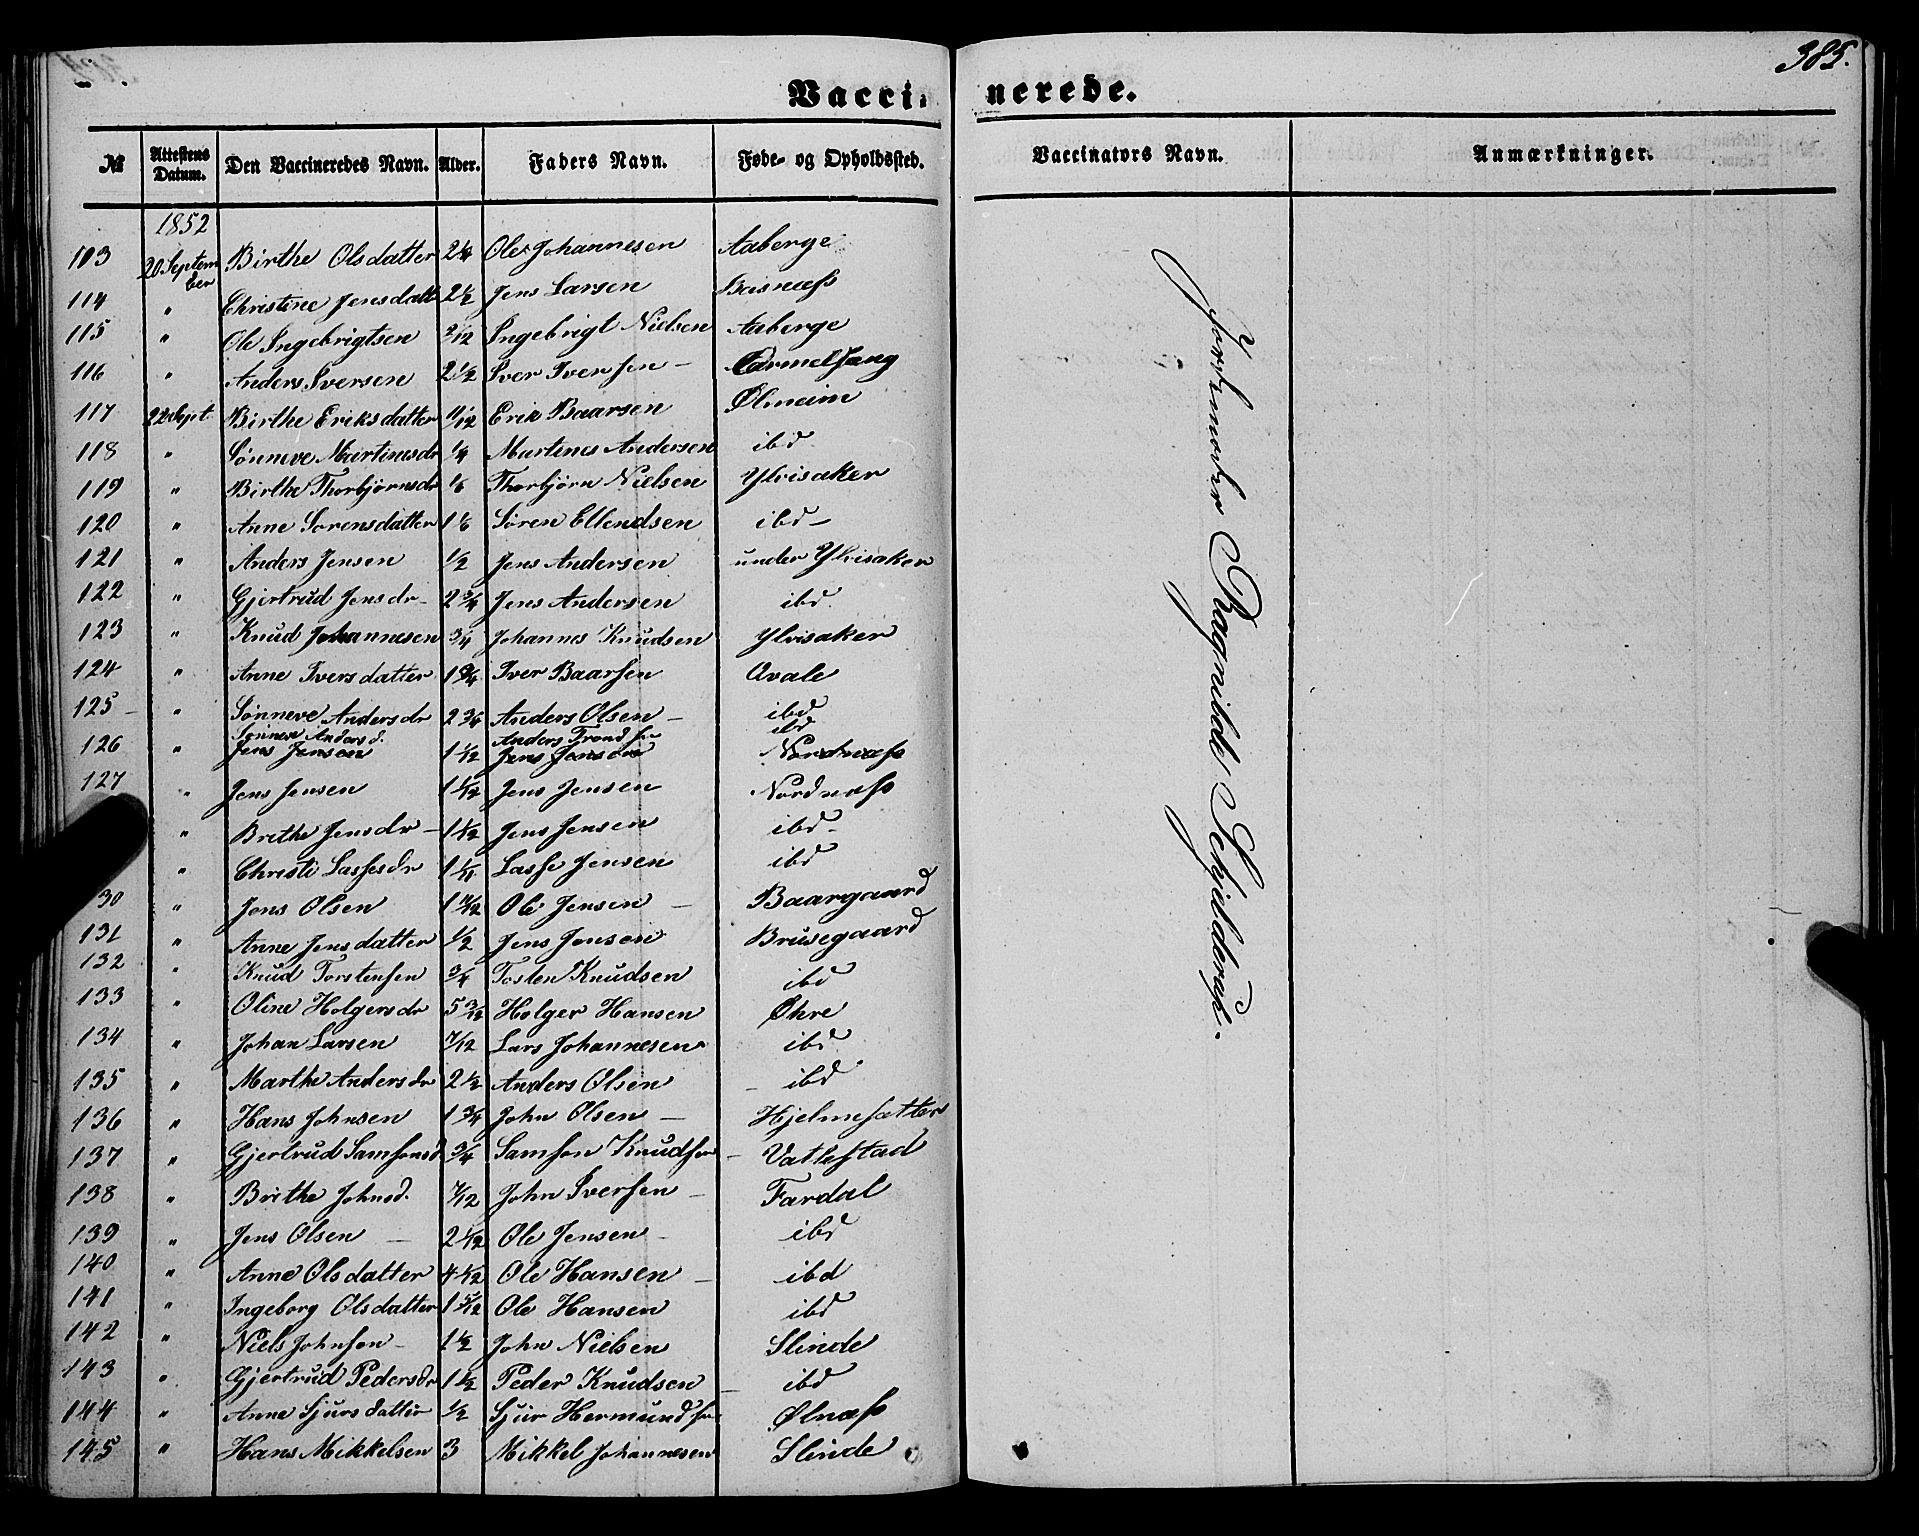 385.
Vacci- nerede.
№ Attestens Datum. Den Vaccineredes Navn. Alder. Faders Navn. Føde- og Opholdssted. Vaccinators Navn. Anmærkninger.
1852
113 20 September Birthe Olsdatter 2 1/4 Ole Johannesen Aaberge
114 " Christine Jensdatt 2 1/2 Jens Larsen Basnæss
115 " Ole Ingebrigtsen 2/12 Ingebrigt Nielsen Aaberge
116 " Anders Iversen 2 1/2 Iver Iversen -
117 22 Sept. Birthe Eriksdatter 11/12 Erik Baarsen Ølmeim
118 " Sønneve Martinusdr 1/4 Martines Andersen ibd
119 " Birthe Thorbjørnsdr 1/6 Thorbjørn Nielsen Ylvisaker
120 " Anne Sorensdatter 1 1/6 Søren Ellendsen ibd -
121 " Anders Jensen 1/2 Jens Andersen under Ylvisaker
122 " Gjertrud Jensdr - 2 3/4 Jens Andersen ibd.
123 " Knud Johannesen 3/4 Johannes Knudsen Ylvisaker
124 " Anne Iversdatter 1 3/4 Iver Baarsen Qvale
125 - " Sønneve Andersdr 2 3/4 Anders Olsen - ibd
Sønneve Anders d. Anders Trondsen ibd
126 " Jens Jensen 1 1/12 Jens Jensen Nordnæss
127 " Jens Jensen 1 1/12 Jens Jensen Nordnæss
" Brithe Jensdr - 1 1/12 Jens Jensen ibd -
" Christi Lassesdr 1 1/11 Lasse Jensen ibd
30 " Jens Olsen Ole Jensen - Baargaard
131 " Anne Jensdatter 1/2 Jens Jensen Brusegaard
132 " Knud Torstensen 3/4 Tosten Knudsen ibd
133 " Oline Holgersdr 5 3/12 Holger Hansen Øhre
134 " Johan Larsen 7/12 Lars Johannesen ibd
135 " Marthe Andersdr 2 1/2 Anders Olsen - ibd
136 " Hans Johnsen 1 3/4 John Olsen - Hjelmesætter
137 " Gjertrud Samsonsd 3/4 Samson Knudsen - Vatlestad
138 " Brithe Johnsd. 7/12 John Iversen - Fardal
139 " Jens Olsen - 2 1/12 Ole Jensen - ibd
140 " Anne Olsdatter 4 1/12 Ole Hansen - ibd
141 " Ingeborg Olsdatter 1 5/12 Ole Hansen ibd
142 " Niels Johnson - 1 1/2 John Nielsen Slinde
143 " Gjertrud Pedersdr 1 1/2 Peder Knudsen - ibd
144 " Anne Sjursdatter 1/2 Sjur Hermundsen Ølnæss
145 " Hans Mikkelsen 3 Mikkel Johannesen Slinde
Jordemoder Ragnilde Schjelderup.